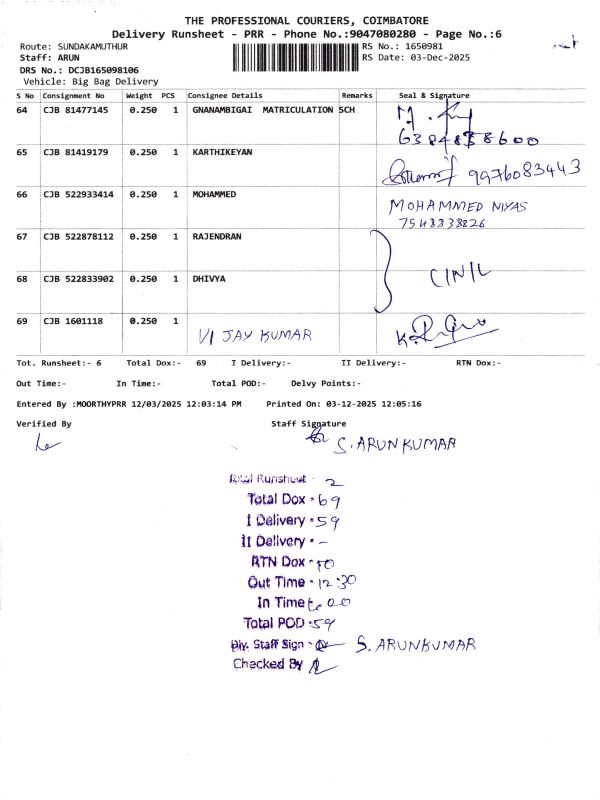 THE PROFESSIONAL COURIERS, COIMBATORE
Delivery Runsheet - PRR - Phone No.:9047080280 - Page No.:6
Route: SUNDAKAMUTHUR RS No.: 1650981
Staff: ARUN RS Date: 03-Dec-2025
DRS No.: DCJB165098106
Vehicle: Big Bag Delivery
S No Consignment No Weight PCS Consignee Details Remarks Seal & Signature
64 CJB 81477145 0.250 1 GNANAMBIGAI MATRICULATION SCH
65 CJB 81419179 0.250 1 KARTHIKEYAN 9976083443
66 CJB 522933414 0.250 1 MOHAMMED MOHAMMED NIYAS
7548338826
67 CJB 522878112 0.250 1 RAJENDRAN
68 CJB 522833902 0.250 1 DHIVYA
69 CJB 1601118 0.250 1 VIJAY KUMAR
Tot. Runsheet:- 6 Total Dox:- 69 I Delivery:- II Delivery:- RTN Dox:-
Out Time:- In Time:- Total POD:- Delvy Points:-
Entered By :MOORTHYPRR 12/03/2025 12:03:14 PM Printed On: 03-12-2025 12:05:16
Verified By Staff Signature
S. ARUNKUMAR
Total Runsheet - 2
Total Dox - 69
I Delivery - 59
II Delivery - -
RTN Dox - 10
Out Time - 12:30
In Time
Total POD - 59
Dly. Staff Sign - S. ARUNKUMAR
Checked By